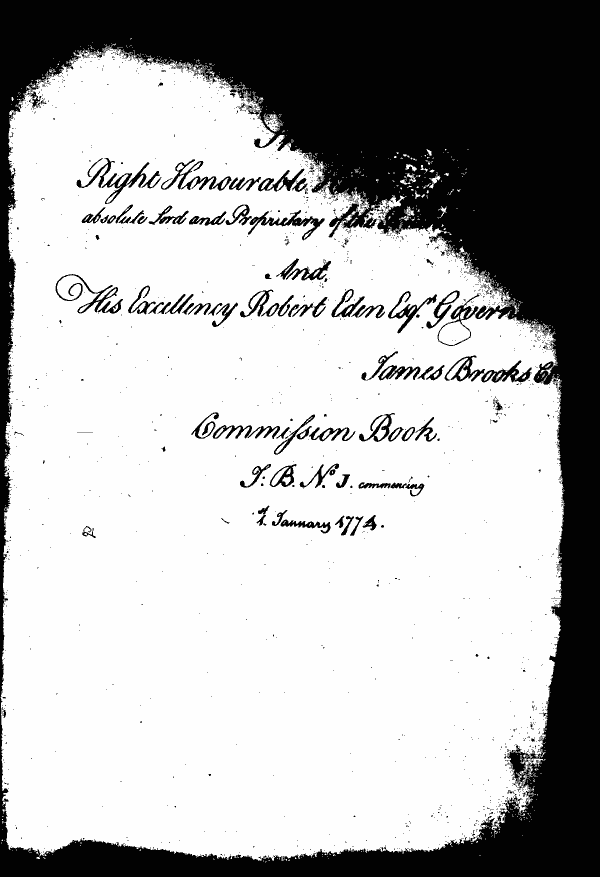 Right Honourable
absolute Lord and Proprietary of the
And
His Excellency Robert Eden Esqr. Govern
James Brooks Cl
Commission Book.
J: B. No. 1. commencing
1. January 1774.